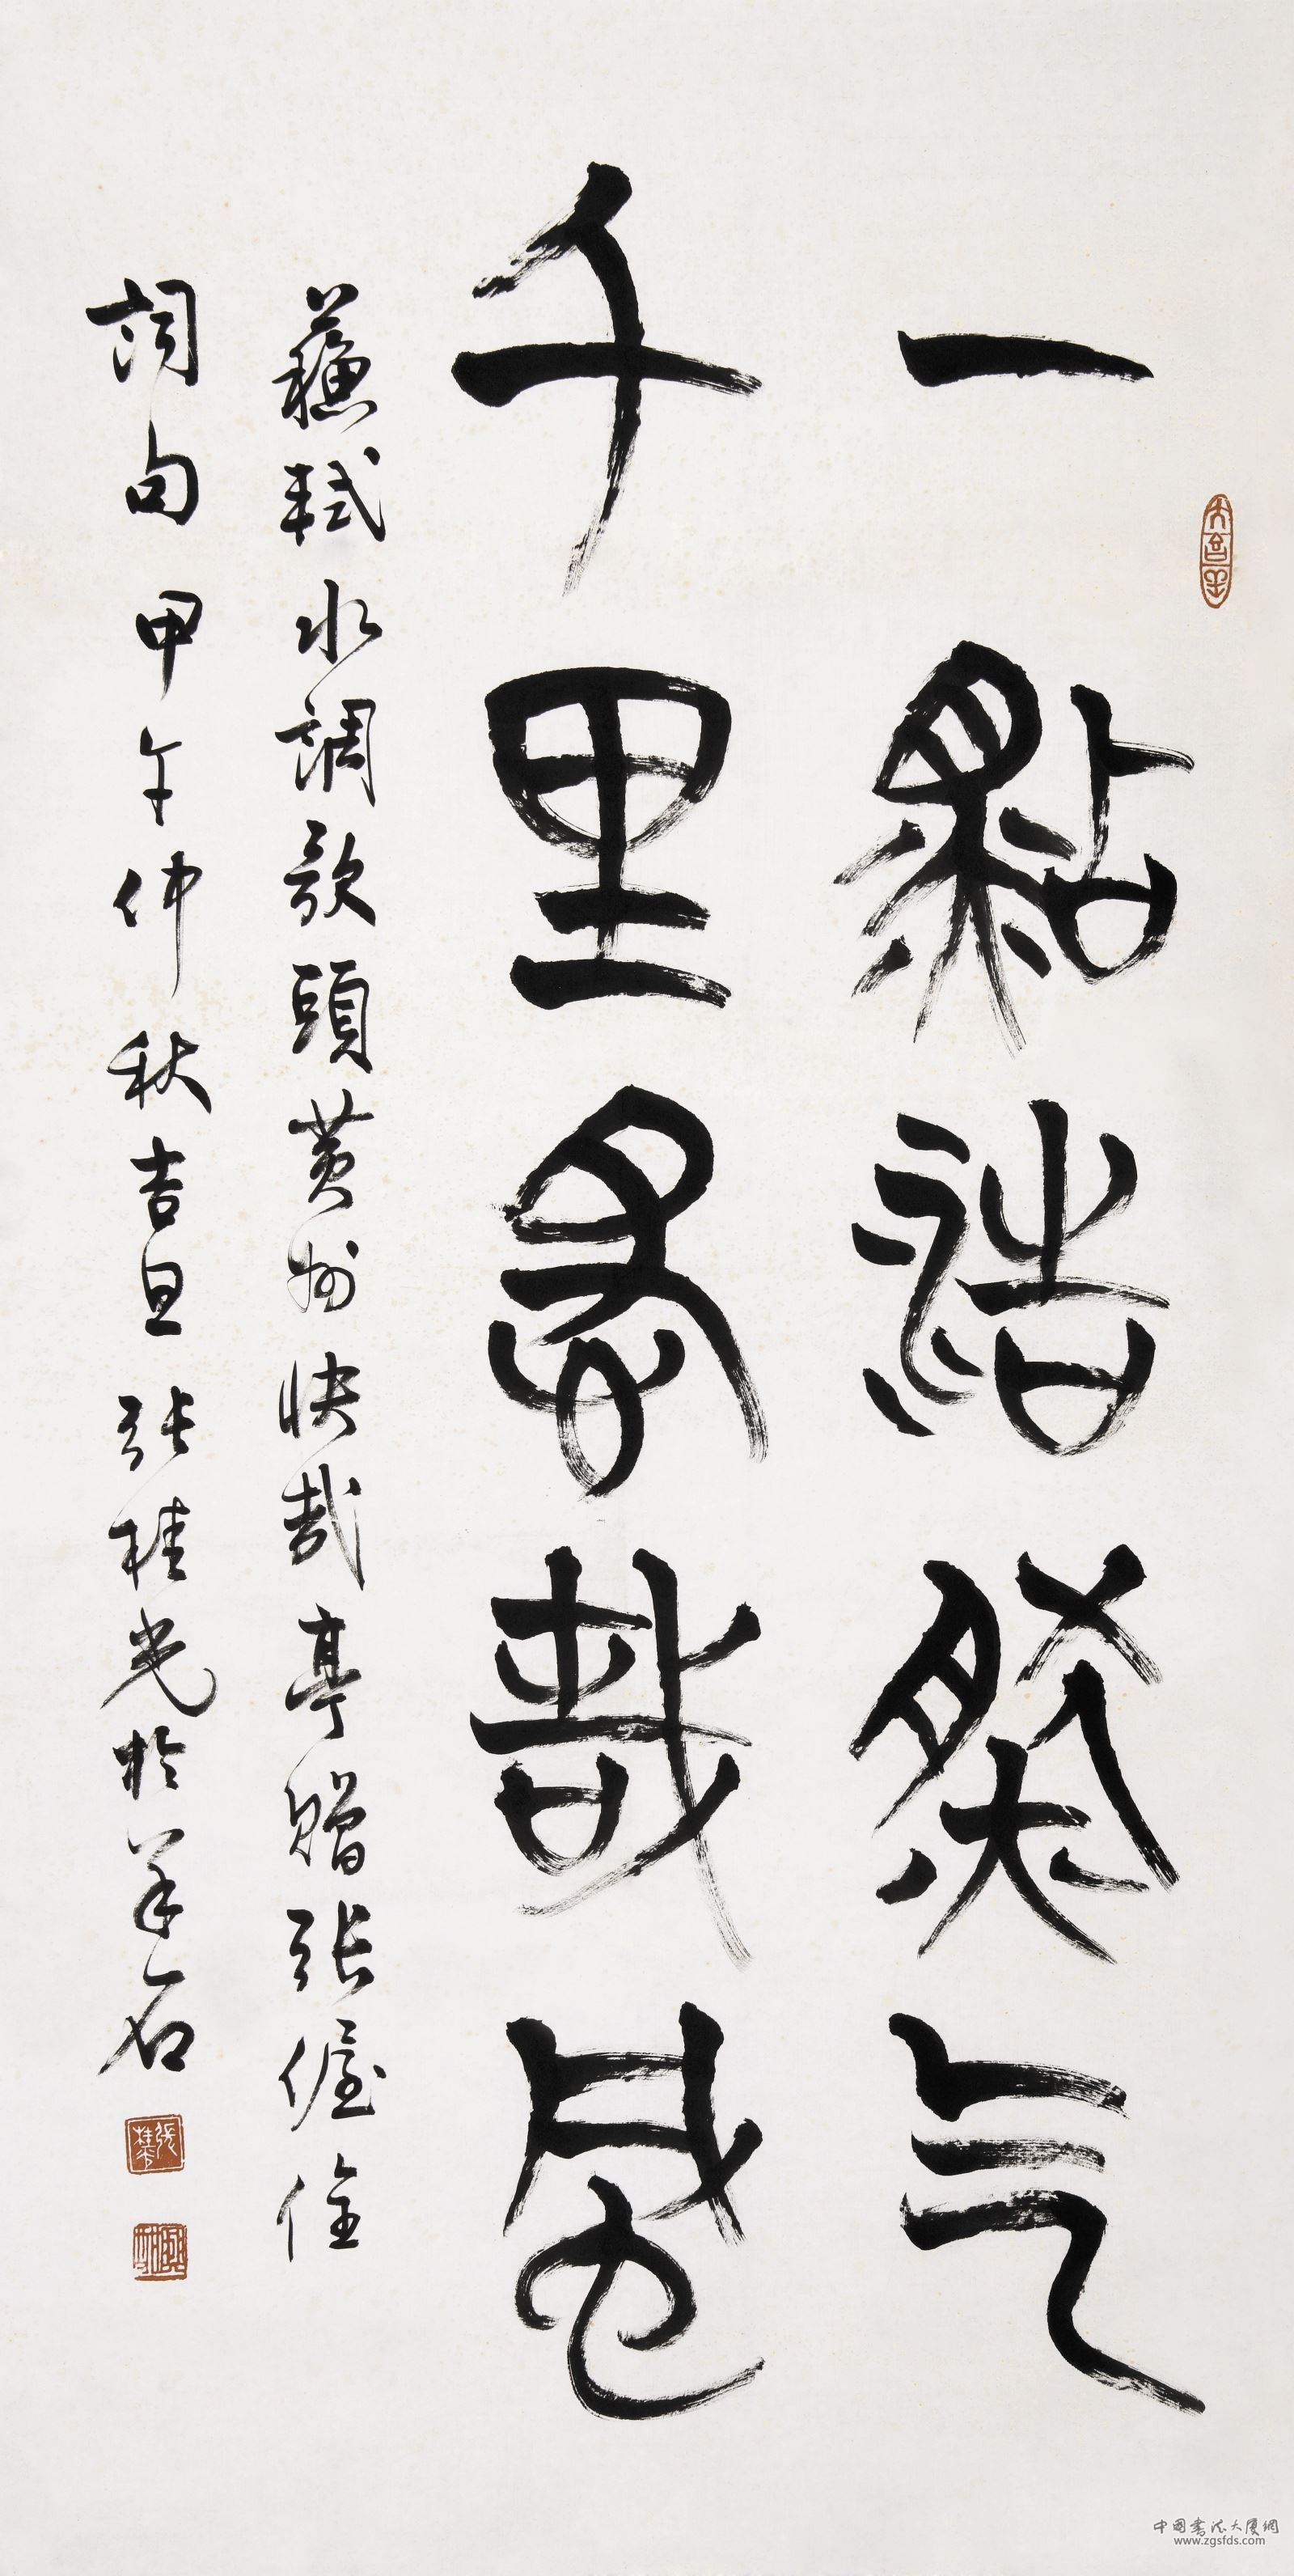 一點浩然气
千里快哉風
蘇軾水調歌頭黃州快哉亭贈張偓佺
詞句甲午仲秋吉旦張桂光於羊石
中國書法大廈網
www.zgsfds.com